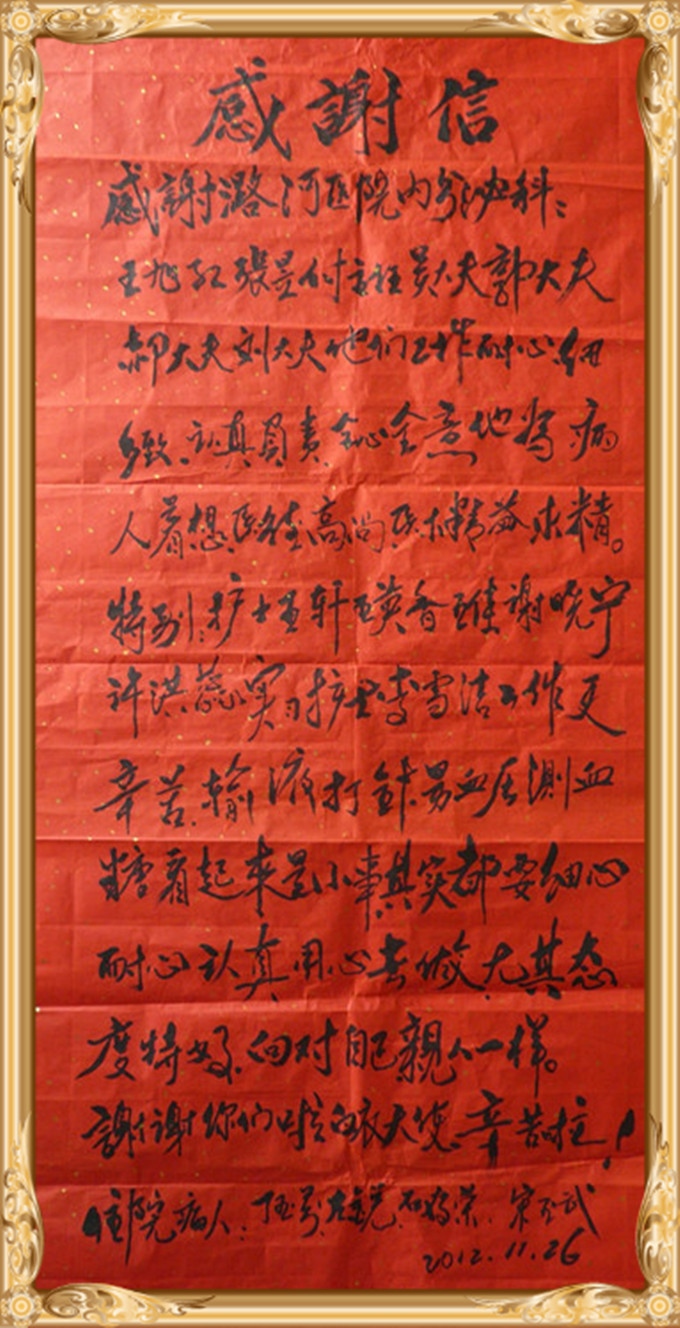 感謝信
感謝潞河医院内分泌科:
王旭红張昱付主任吴大夫郭大夫
郝大夫刘大夫他们工作耐心细
緻、認真負責、全心全意他為病
人着想医德高尚医术精益求精。
特别:护士王轩王英香王佳謝晓宁
许洪蕊实习护士李雪洁工作更
辛苦、输液打針量血压测血
糖看起来是小事其实都要细心
耐心认真用心去做尤其态
度特好、向对自己親人一样。
謝謝你们啦白衣大使辛苦啦!
住院病人、石为荣、宋至武
2012.11.26